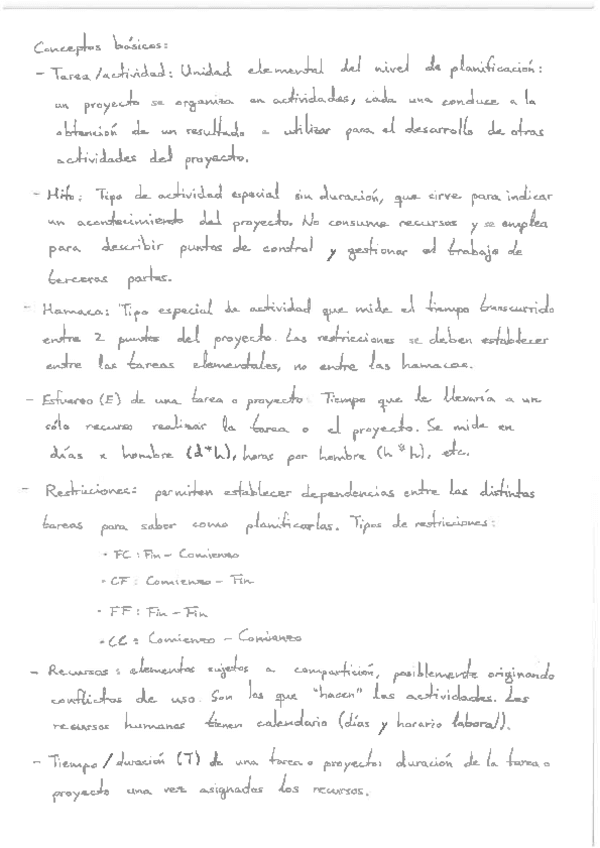 Conceptos básicos:
- Tarea/actividad: Unidad elemental del nivel de planificación:
un proyecto se organiza en actividades, cada una conduce a la
obtención de un resultado a utilizar para el desarrollo de otras
actividades del proyecto.
- Hito: Tipo de actividad especial sin duración, que sirve para indicar
un acontecimiento del proyecto. No consume recursos y se emplea
para describir puntos de control y gestionar el trabajo de
terceras partes.
- Hamaca: Tipo especial de actividad que mide el tiempo transcurrido
entre 2 puntos del proyecto. Las restricciones se deben establecer
entre las tareas elementales, no entre las hamacas.
- Esfuerzo (E) de una tarea o proyecto: Tiempo que le llevaría a un
sólo recurso realizar la tarea o el proyecto. Se mide en
días x hombre (d*h), horas por hombre (h*h), etc.
- Restricciones: permiten establecer dependencias entre las distintas
tareas para saber como planificarlas. Tipos de restricciones:
· FC: Fin - Comienzo
· CF: Comienzo - Fin
· FF: Fin - Fin
· CC: Comienzo - Comienzo
- Recursos: elementos sujetos a compartición, posiblemente originando
conflictos de uso. Son los que "hacen" las actividades. Los
recursos humanos tienen calendario (días y horario laboral).
- Tiempo/duración (T) de una tarea o proyecto: duración de la tarea o
proyecto una vez asignados los recursos.